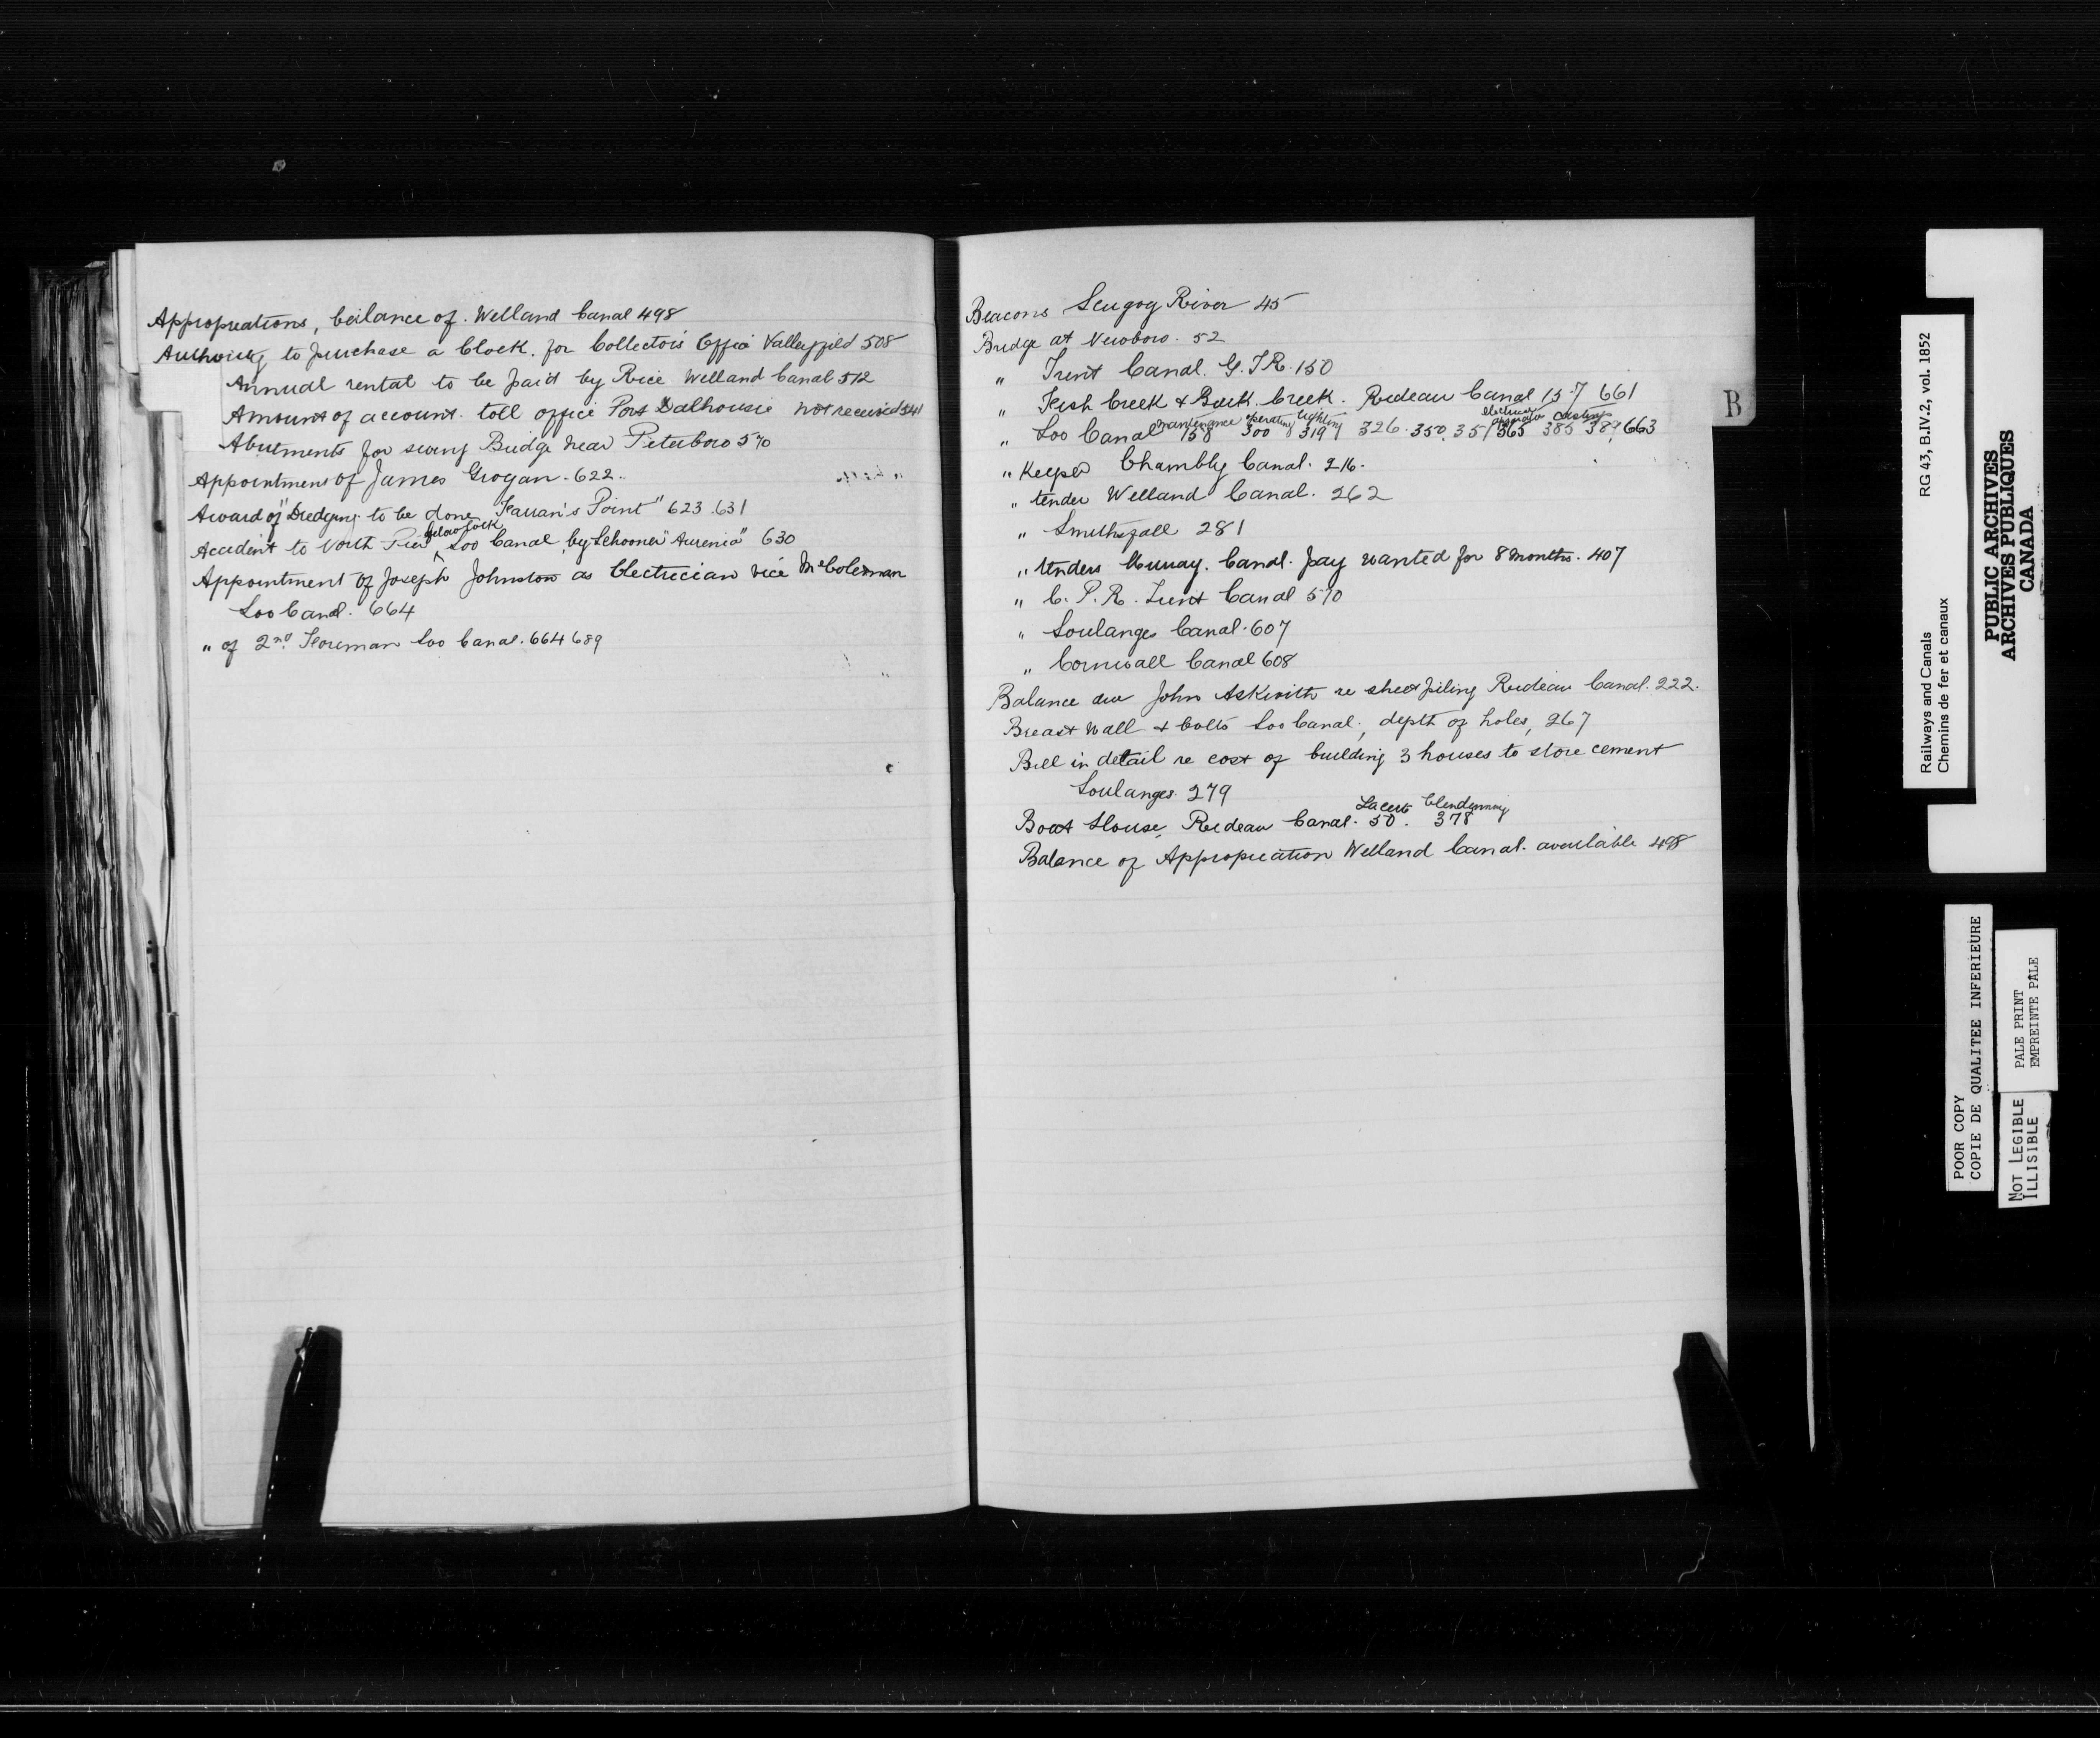 Appropreations, balance of. Welland Canal 498
Authority to purchase a Clock. for Collector's Office Valleyfield 508
Annual rental to be paid by Rice Welland Canal 512
Amount of account. toll office Port Dalhousie not received 541
Abutments for swing Bridge near Peterboro 570
Appointment of James Grogan. 622.
Award of "Dredging to be done Farran's Point" 623.631
Accident to North Pier below lock Soo Canal, by Schooner "Aurenia" 630
Appointment of Joseph Johnston as Electrician vice McColeman
Soo Canal. 664
" of 2nd Foreman Soo Canal. 664 689
Beacons Scugog River 45
Bridge at Newboro. 52
" Trent Canal. G.T.R. 150
" Fish Creek & Back Creek. Rideau Canal 157 661
maintenance operating lighting electrical apparatus castings
" Soo Canal 158 300 319 326. 350. 351 365 385 387, 663
" Keeper Chambly Canal. 216.
" tender Welland Canal. 262
" Smithsfall 281
" tenders Murray. Canal. pay wanted for 8 months. 407
" C. P. R. Trent Canal 570
" Soulanges Canal. 607
" Cornwall Canal 608
Balance due John Askwith re sheet piling Rideau Canal. 222.
Breast Wall & bolts Soo Canal, depth of holes, 267
Bill in detail re cost of building 3 houses to store cement
Soulanges 279
Clendinning
Boat House, Rideau Canal. 50. 378
Balance of Appropriation Welland Canal. available 498
B
Railways and Canals RG 43, B.IV.2, vol. 1852
Chemins de fer et canaux
PUBLIC ARCHIVES
ARCHIVES PUBLIQUES
CANADA
POOR COPY
COPIE DE QUALITEE INFERIEURE
PALE PRINT
EMPREINTE PALE
NOT LEGIBLE
ILLISIBLE